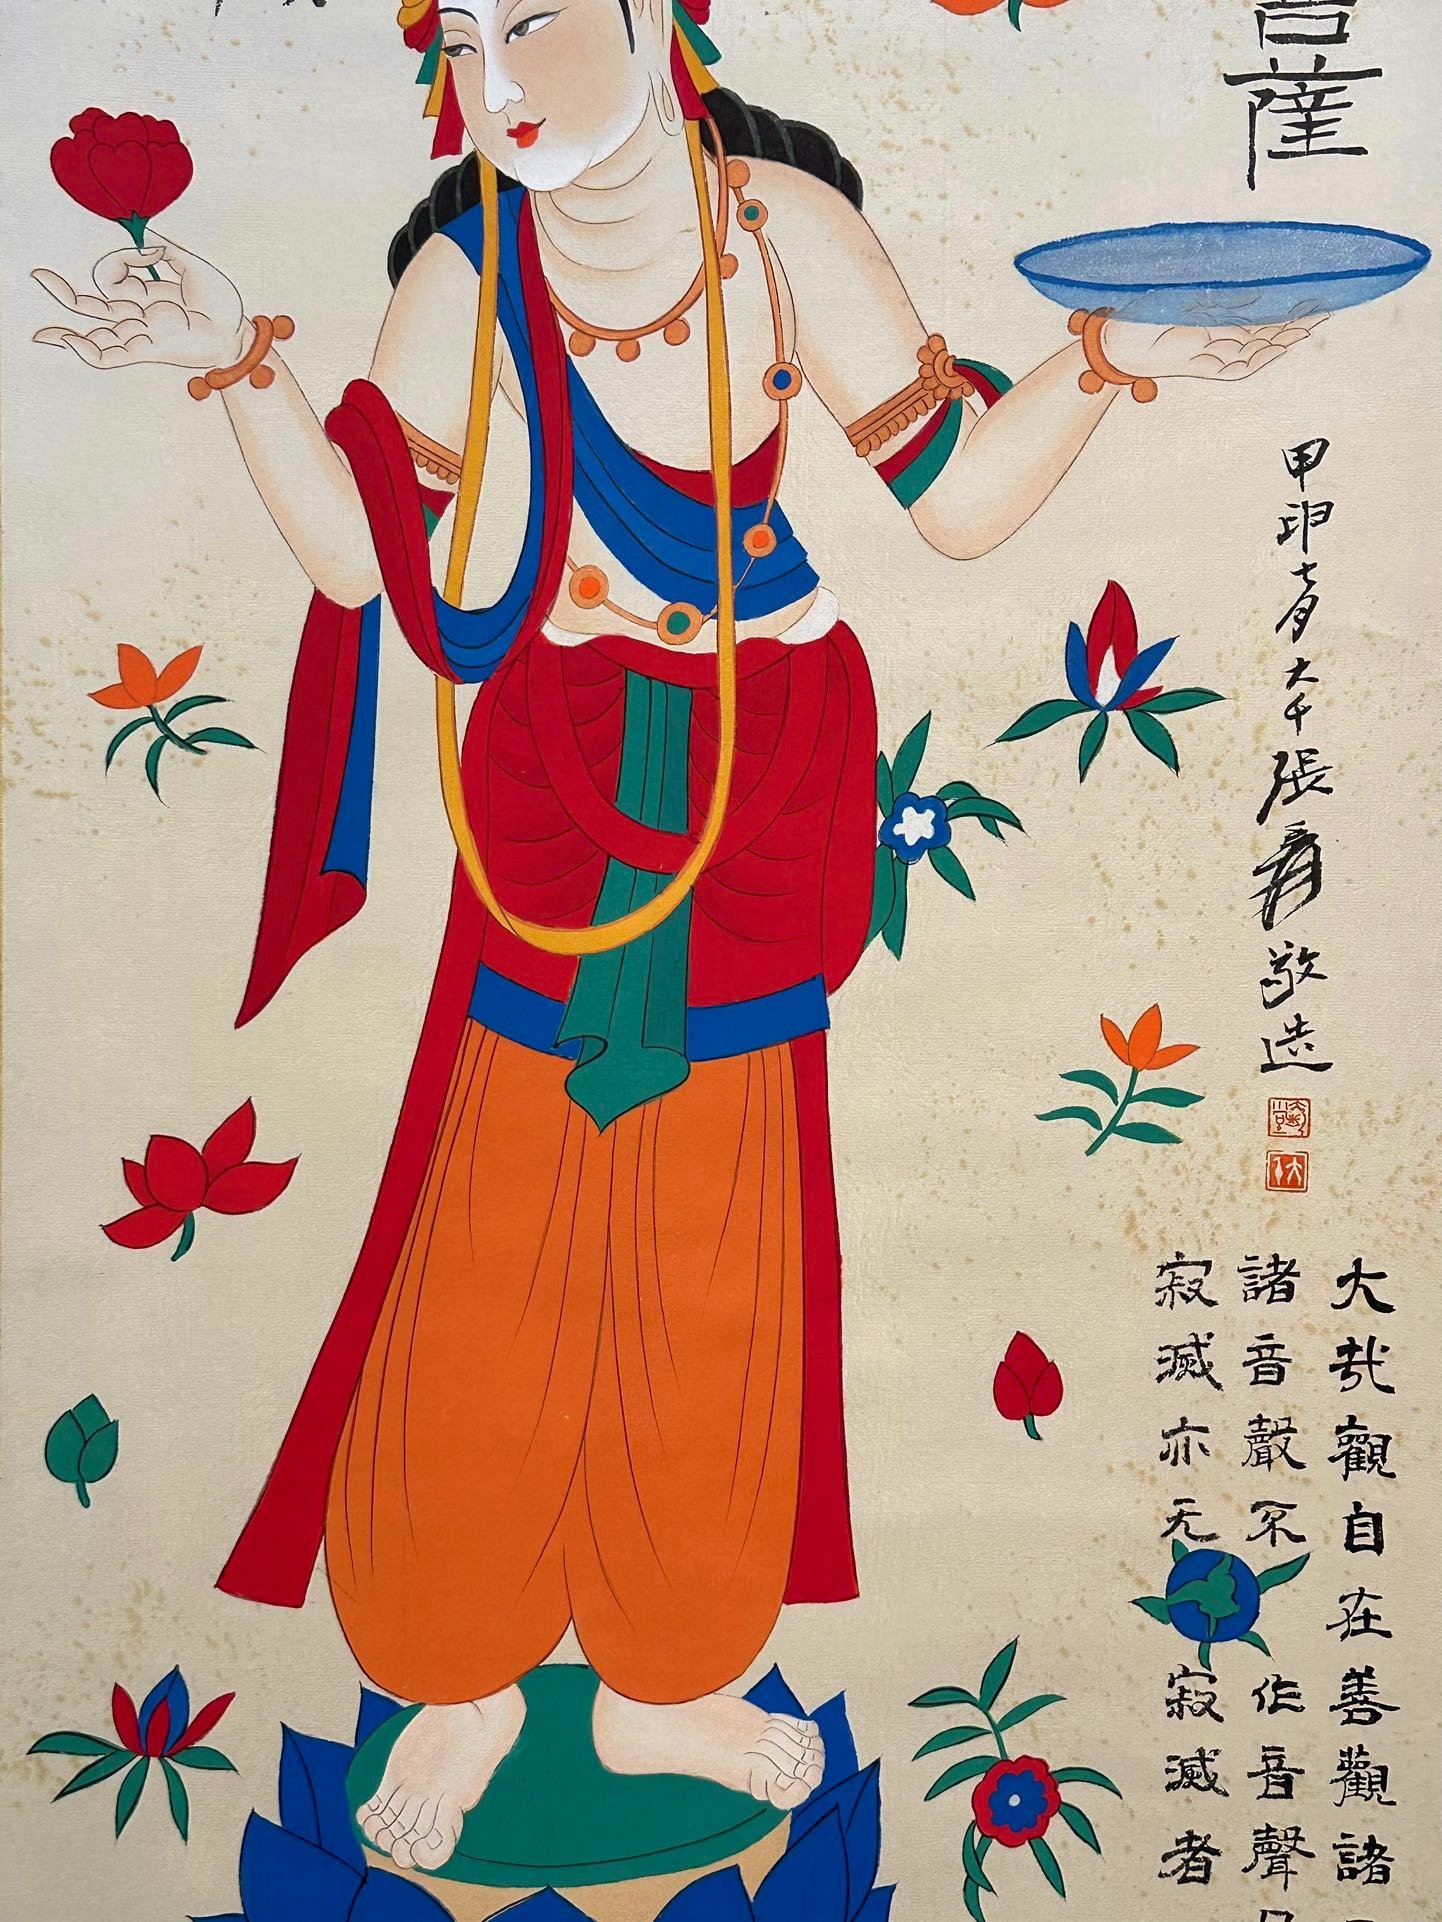 菩薩
甲申七月大千張爰敬造
大哉觀自在善觀諸
諸音聲不作音聲
寂滅亦无寂滅者